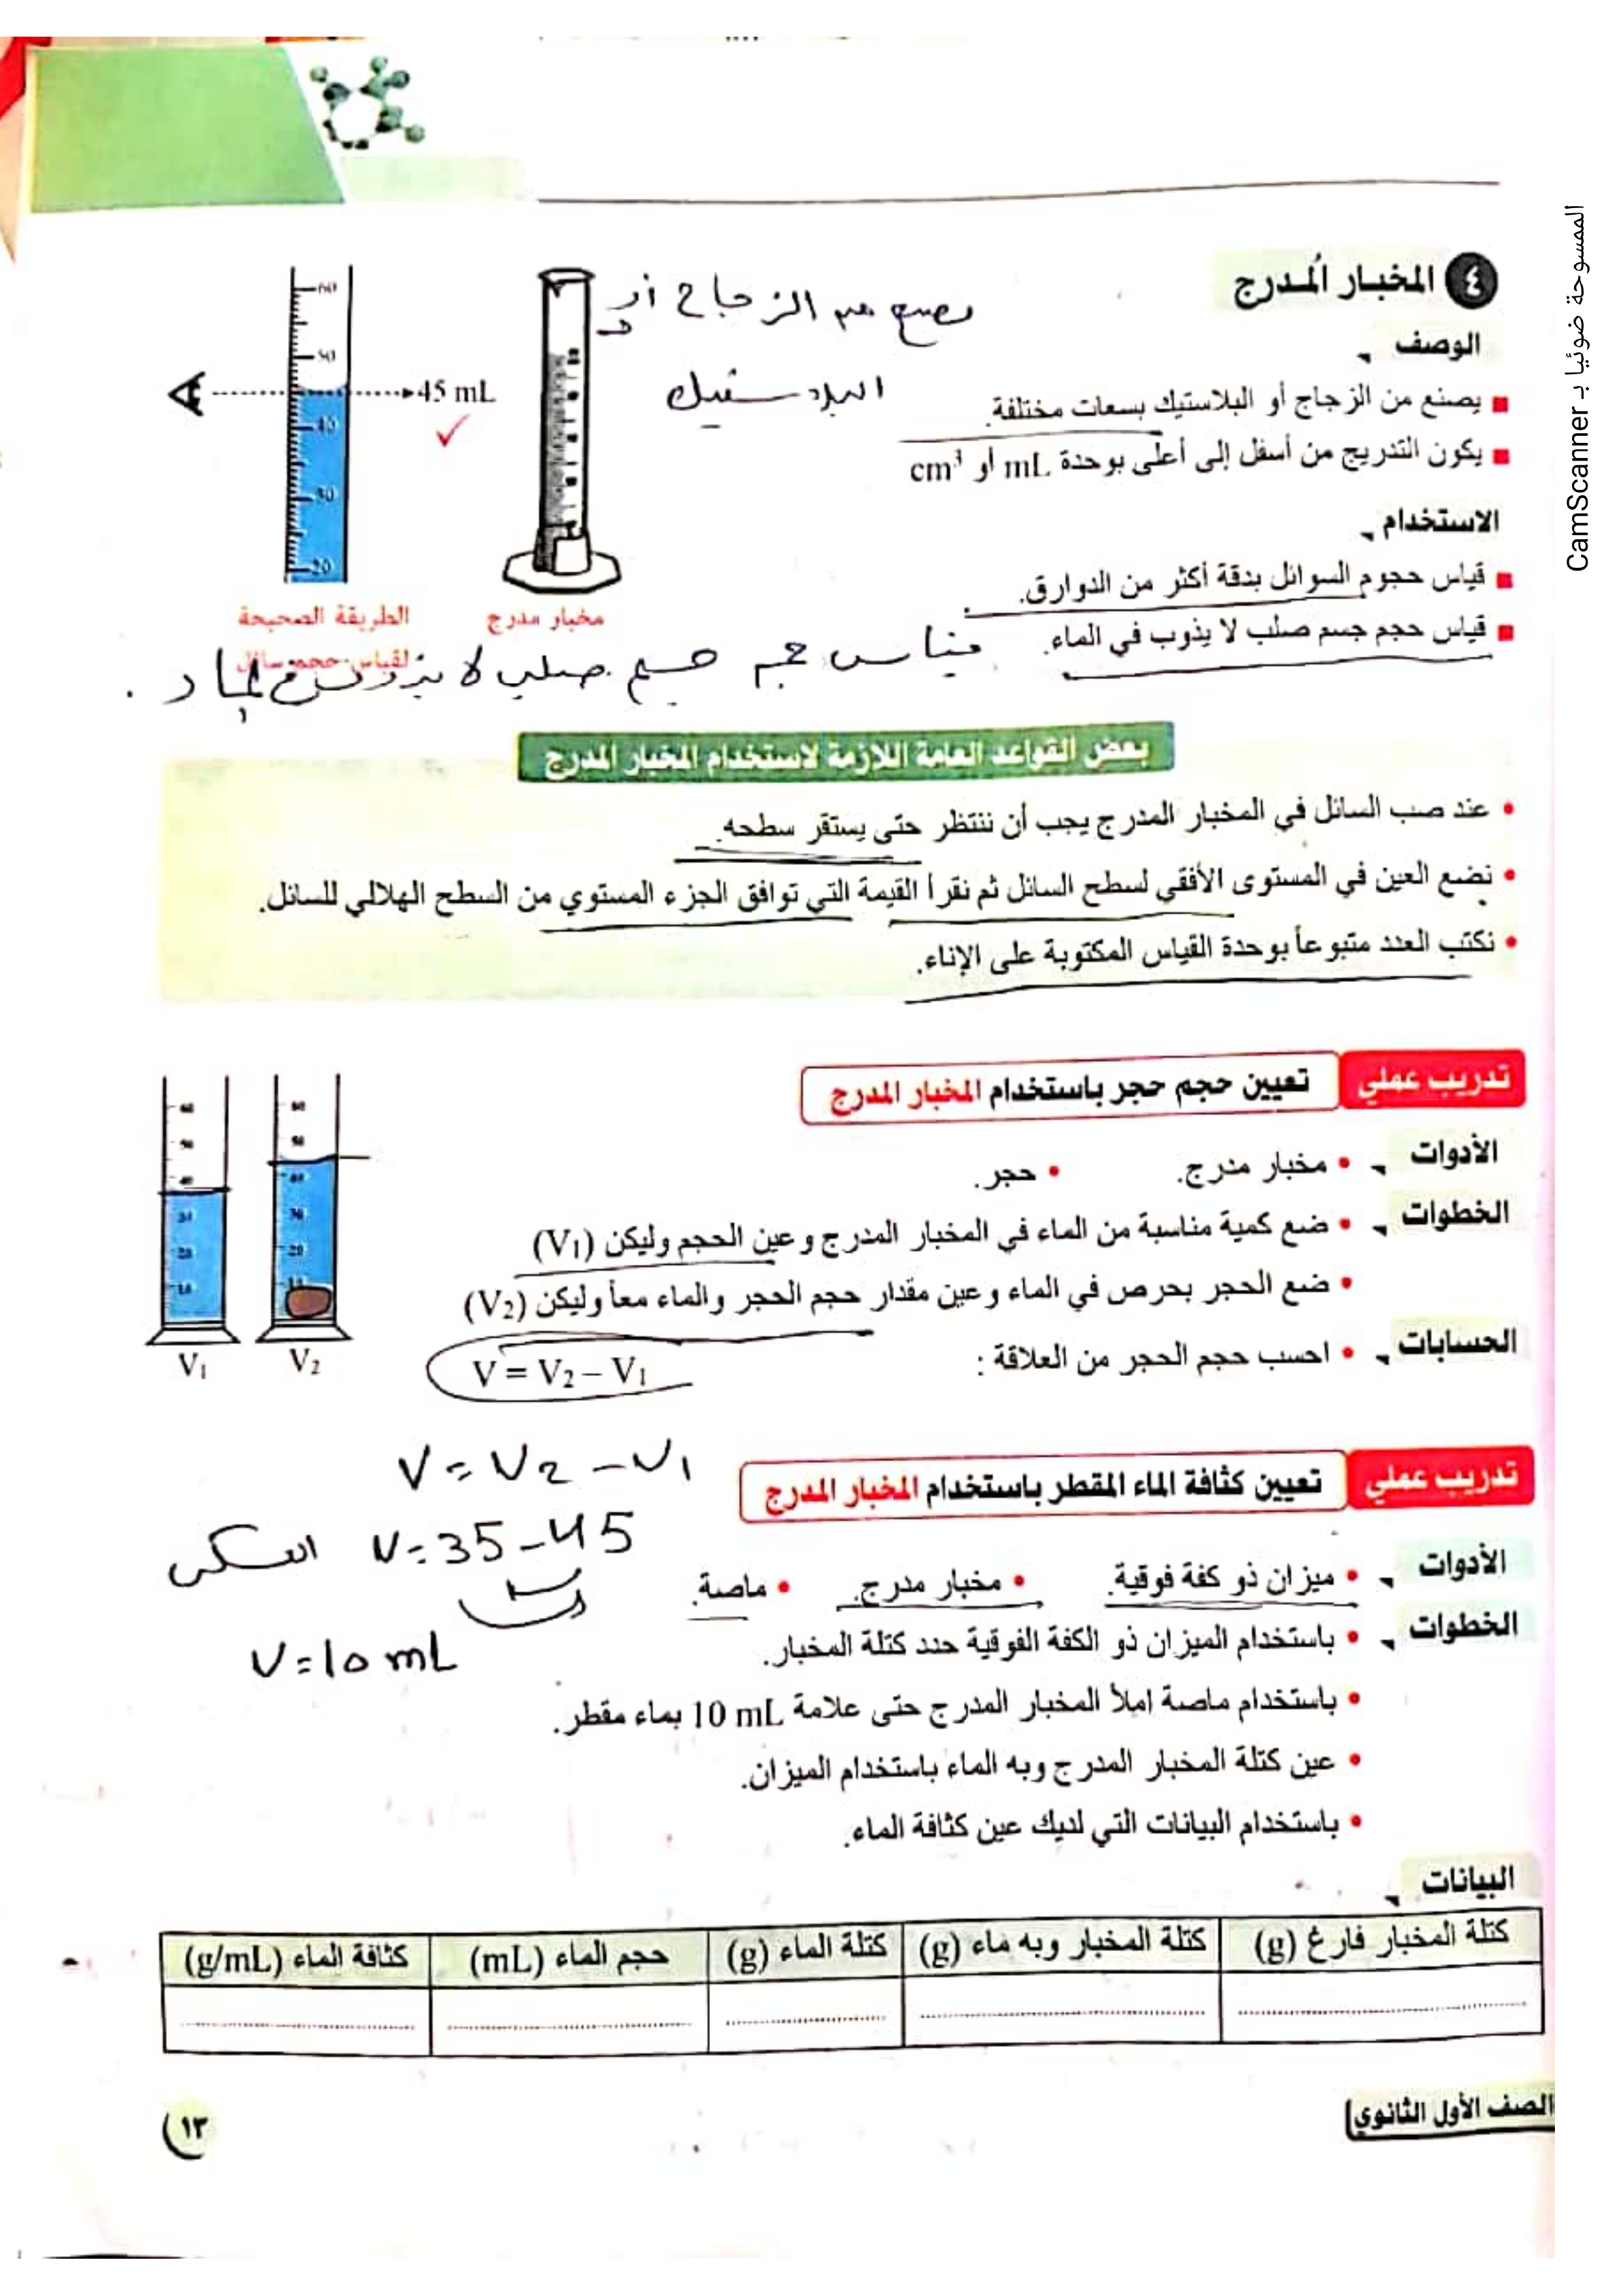 ٤ المخبار المُدرج
الوصف
يصنع من الزجاج أو البلاستيك بسعات مختلفة.
يكون التدريج من أسفل إلى أعلى بوحدة mL أو cm³
الاستخدام
قياس حجوم السوائل بدقة أكثر من الدوارق.
قياس حجم جسم صلب لا يذوب في الماء.
يصنع من الزجاج أو
البلاستيك
60
50
45 mL
40
30
20
مخبار مدرج
الطريقة الصحيحة
لقياس حجم سائل
قياس حجم جسم صلب لا يذوب في الماء.
بعض القواعد العامة اللازمة لاستخدام المخبار المدرج
• عند صب السائل في المخبار المدرج يجب أن ننتظر حتى يستقر سطحه.
• نضع العين في المستوى الأفقي لسطح السائل ثم نقرأ القيمة التي توافق الجزء المستوي من السطح الهلالي للسائل.
• نكتب العدد متبوعاً بوحدة القياس المكتوبة على الإناء.
تدريب عملي تعيين حجم حجر باستخدام المخبار المدرج
الأدوات • مخبار مدرج. • حجر.
الخطوات • ضع كمية مناسبة من الماء في المخبار المدرج وعين الحجم وليكن (V₁)
• ضع الحجر بحرص في الماء وعين مقدار حجم الحجر والماء معاً وليكن (V₂)
الحسابات • احسب حجم الحجر من العلاقة :
V = V₂ – V₁
V₁
V₂
V = V₂ – V₁
V = 35 – 45 العكس
V = 10 mL
تدريب عملي تعيين كثافة الماء المقطر باستخدام المخبار المدرج
الأدوات • ميزان ذو كفة فوقية. • مخبار مدرج. • ماصة.
الخطوات • باستخدام الميزان ذو الكفة الفوقية حدد كتلة المخبار.
• باستخدام ماصة املأ المخبار المدرج حتى علامة 10 mL بماء مقطر.
• عين كتلة المخبار المدرج وبه الماء باستخدام الميزان.
• باستخدام البيانات التي لديك عين كثافة الماء.
البيانات
كتلة المخبار فارغ (g) كتلة المخبار وبه ماء (g) كتلة الماء (g) حجم الماء (mL) كثافة الماء (g/mL)
الصف الأول الثانوي
١٣
الممسوحة ضوئيا بـ CamScanner